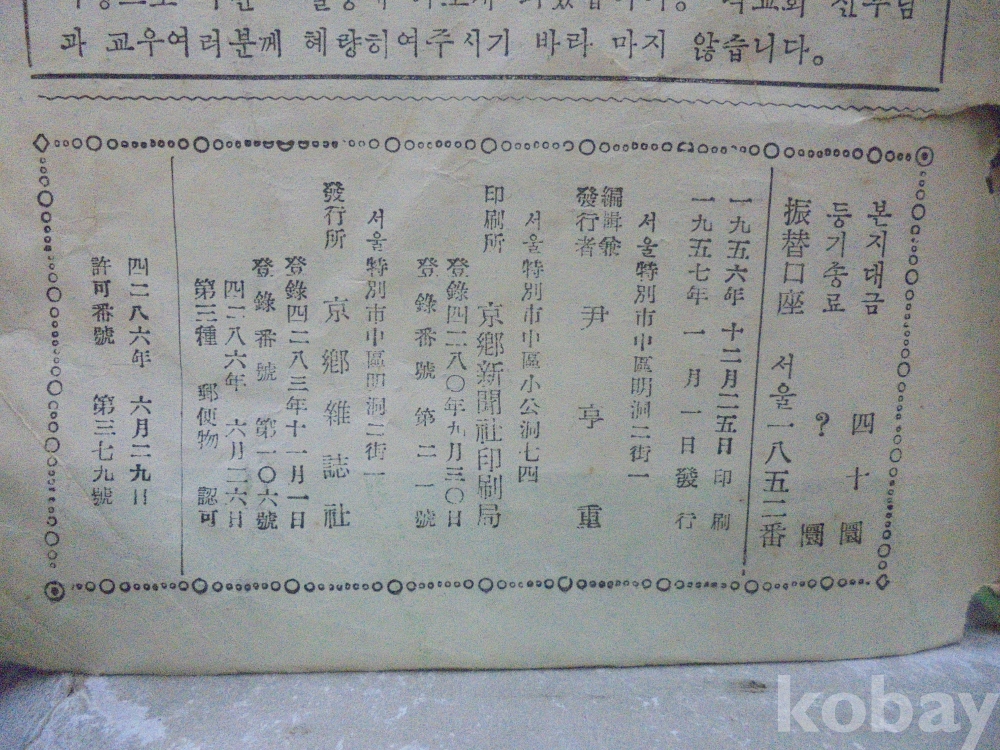 과 교우여러분께 혜량히여주시기 바라 마지 않습니다。
본지대금 四十圜
등기송료 ? 圜
振替口座 서울一八五二番
一九五六年 十二月二五日 印刷
一九五七年 一月一日 發行
서울特別市中區明洞二街一
編輯兼
發行者 尹亨重
서울特別市中區小公洞七四
印刷所 京鄕新聞社印刷局
登錄四二八〇年九月三〇日
登錄番號 第二一號
서울特別市中區明洞二街一
發行所 京鄕雜誌社
登錄四二八三年十一月一日
登錄番號 第一〇六號
四二八六年 六月二六日
第三種 郵便物 認可
四二八六年 六月二九日
許可番號 第三七九號
kobay